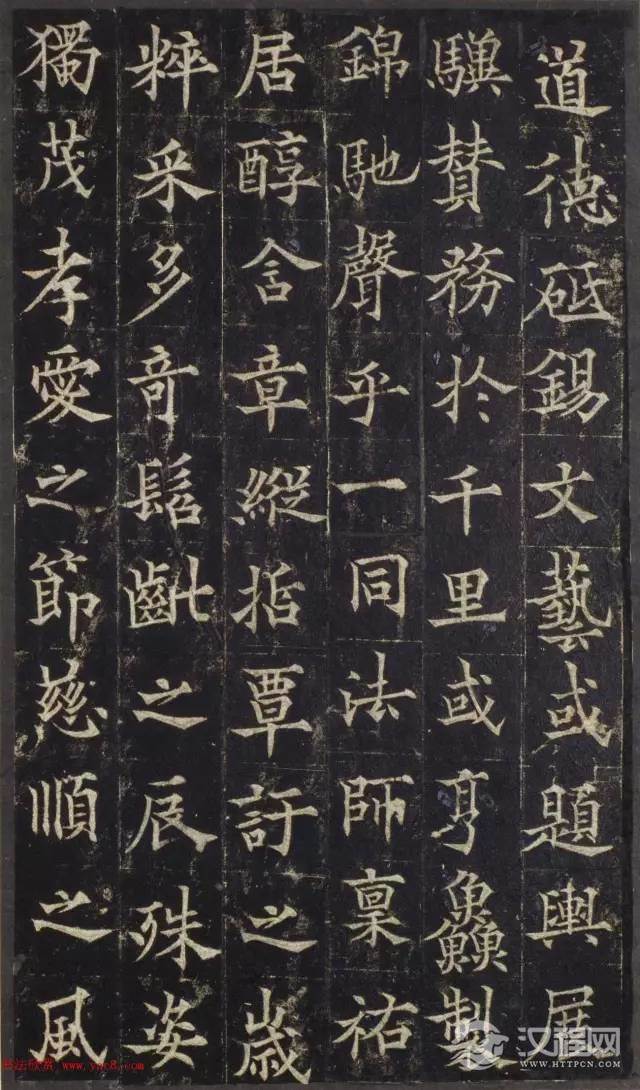 道德砥錫文藝或題輿展
驥賛務於千里或亨鱻製
錦馳聲乎一同法師稟祐
居醇含章縱哲覃訏之歲
粹采多奇髫齔之辰殊姿
獨茂孝愛之節慈順之風
书法欣赏 www.yac8.com
汉程网
WWW.HTTPCN.COM